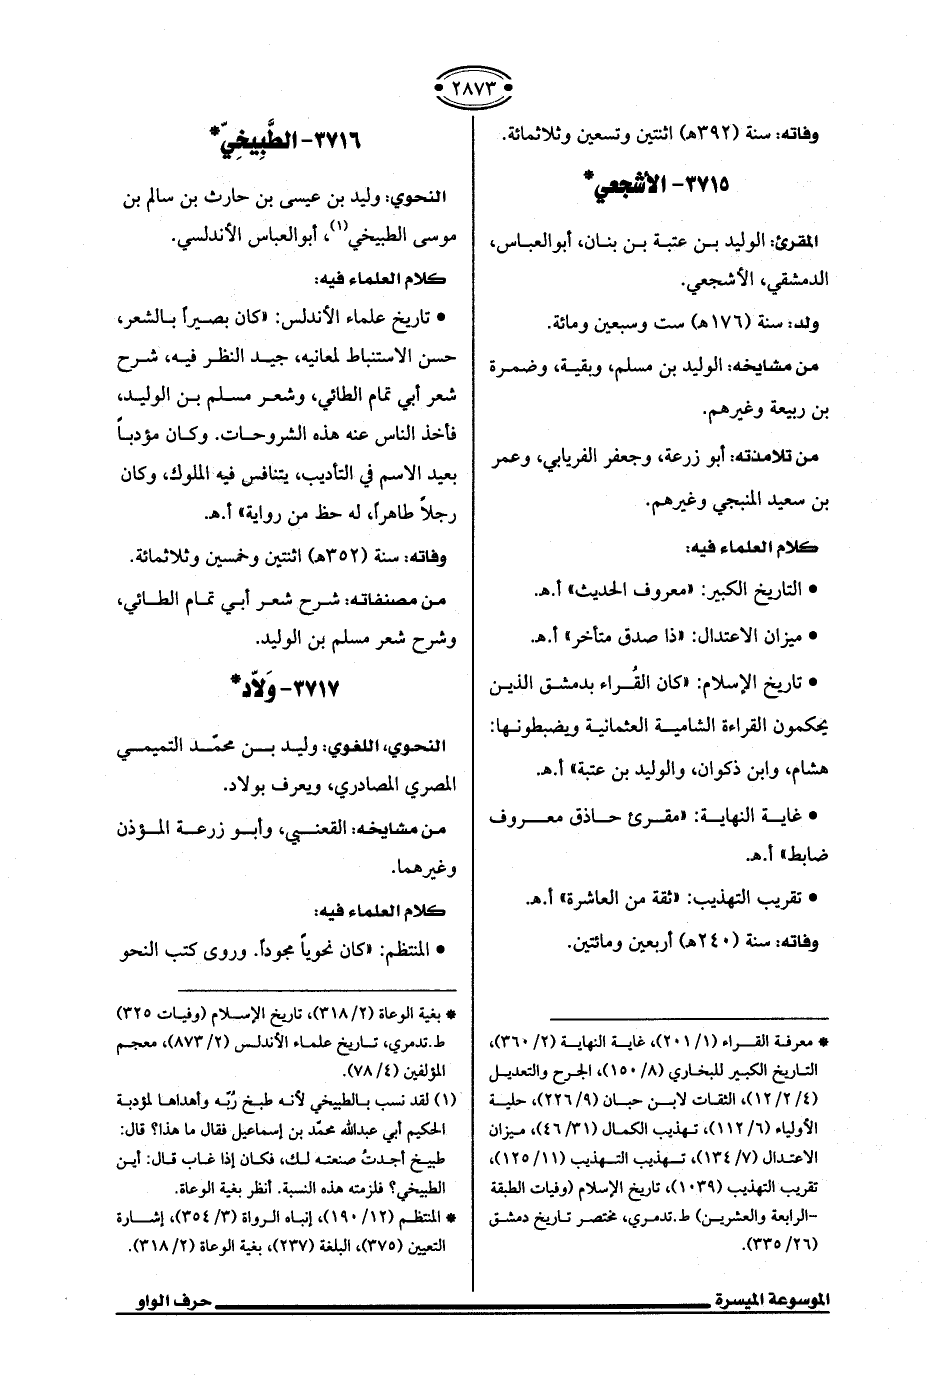 ٢٨٧٣
وفاته: سنة (٣٩٢هـ) اثنتين وتسعين وثلاثمائة.
٣٧١٥- الأشجعي*
المقرئ: الوليد بن عتبة بن بنان، أبو العباس،
الدمشقي، الأشجعي.
ولد: سنة (١٧٦هـ) ست وسبعين ومائة.
من مشايخه: الوليد بن مسلم، وبقية، وضمرة
بن ربيعة وغيرهم.
من تلامذته: أبو زرعة، وجعفر الفريابي، وعمر
بن سعيد المنبجي وغيرهم.
كلام العلماء فيه:
• التاريخ الكبير: «معروف الحديث» أ.هـ.
• ميزان الاعتدال: «ذا صدق متأخر» أ.هـ.
• تاريخ الإسلام: «كان القُراء بدمشق الذين
يحكمون القراءة الشامية العثمانية ويضبطونها:
هشام، وابن ذكوان، والوليد بن عتبة» أ.هـ.
• غاية النهاية: «مقرئ حاذق معروف
ضابط» أ.هـ.
• تقريب التهذيب: «ثقة من العاشرة» أ.هـ.
وفاته: سنة (٢٤٠هـ) أربعين ومائتين.
* معرفة القراء (١/ ٢٠١)، غاية النهاية (٢/ ٣٦٠)،
التاريخ الكبير للبخاري (٨/ ١٥٠)، الجرح والتعديل
(٤/ ٢/ ١٢)، الثقات لابن حبان (٩/ ٢٢٦)، حلية
الأولياء (٦/ ١١٢)، تهذيب الكمال (٣١/ ٤٦)، ميزان
الاعتدال (٧/ ١٣٤)، تهذيب التهذيب (١١/ ١٢٥)،
تقريب التهذيب (١٠٣٩)، تاريخ الإسلام (وفيات الطبقة
-الرابعة والعشرين) ط.تدمري، مختصر تاريخ دمشق
(٢٦/ ٣٣٥).
٣٧١٦- الطَّبِيخيّ*
النحوي: وليد بن عيسى بن حارث بن سالم بن
موسى الطبيخي(١)، أبو العباس الأندلسي.
كلام العلماء فيه:
• تاريخ علماء الأندلس: «كان بصيراً بالشعر،
حسن الاستنباط لمعانيه، جيد النظر فيه، شرح
شعر أبي تمام الطائي، وشعر مسلم بن الوليد،
فأخذ الناس عنه هذه الشروحات. وكان مؤدباً
بعيد الاسم في التأديب، يتنافس فيه الملوك، وكان
رجلاً طاهراً، له حظ من رواية» أ.هـ.
وفاته: سنة (٣٥٢هـ) اثنتين وخمسين وثلاثمائة.
من مصنفاته: شرح شعر أبي تمام الطائي،
وشرح شعر مسلم بن الوليد.
٣٧١٧- وَلاَّد*
النحوي، اللغوي: وليد بن محمّد التميمي
المصري المصادري، ويعرف بولاد.
من مشايخه: القعنبي، وأبو زرعة المؤذن
وغيرهما.
كلام العلماء فيه:
• المنتظم: «كان نحوياً مجوداً. وروى كتب النحو
* بغية الوعاة (٢/ ٣١٨)، تاريخ الإسلام (وفيات ٣٢٥)
ط.تدمري، تاريخ علماء الأندلس (٢/ ٨٧٣)، معجم
المؤلفين (٤/ ٧٨).
(١) لقد نسب بالطبيخي لأنه طبخ رُبّه وأهداها لمؤدبة
الحكيم أبي عبدالله محمّد بن إسماعيل فقال ما هذا؟ قال:
طبيخ أجدتُ صنعته لك، فكان إذا غاب قال: أين
الطبيخي؟ فلزمته هذه النسبة. أنظر بغية الوعاة.
* المنتظم (١٢/ ١٩٠)، إنباه الرواة (٣/ ٣٥٤)، إشارة
التعيين (٣٧٥)، البلغة (٢٣٧)، بغية الوعاة (٢/ ٣١٨).
الموسوعة الميسرة
حرف الواو